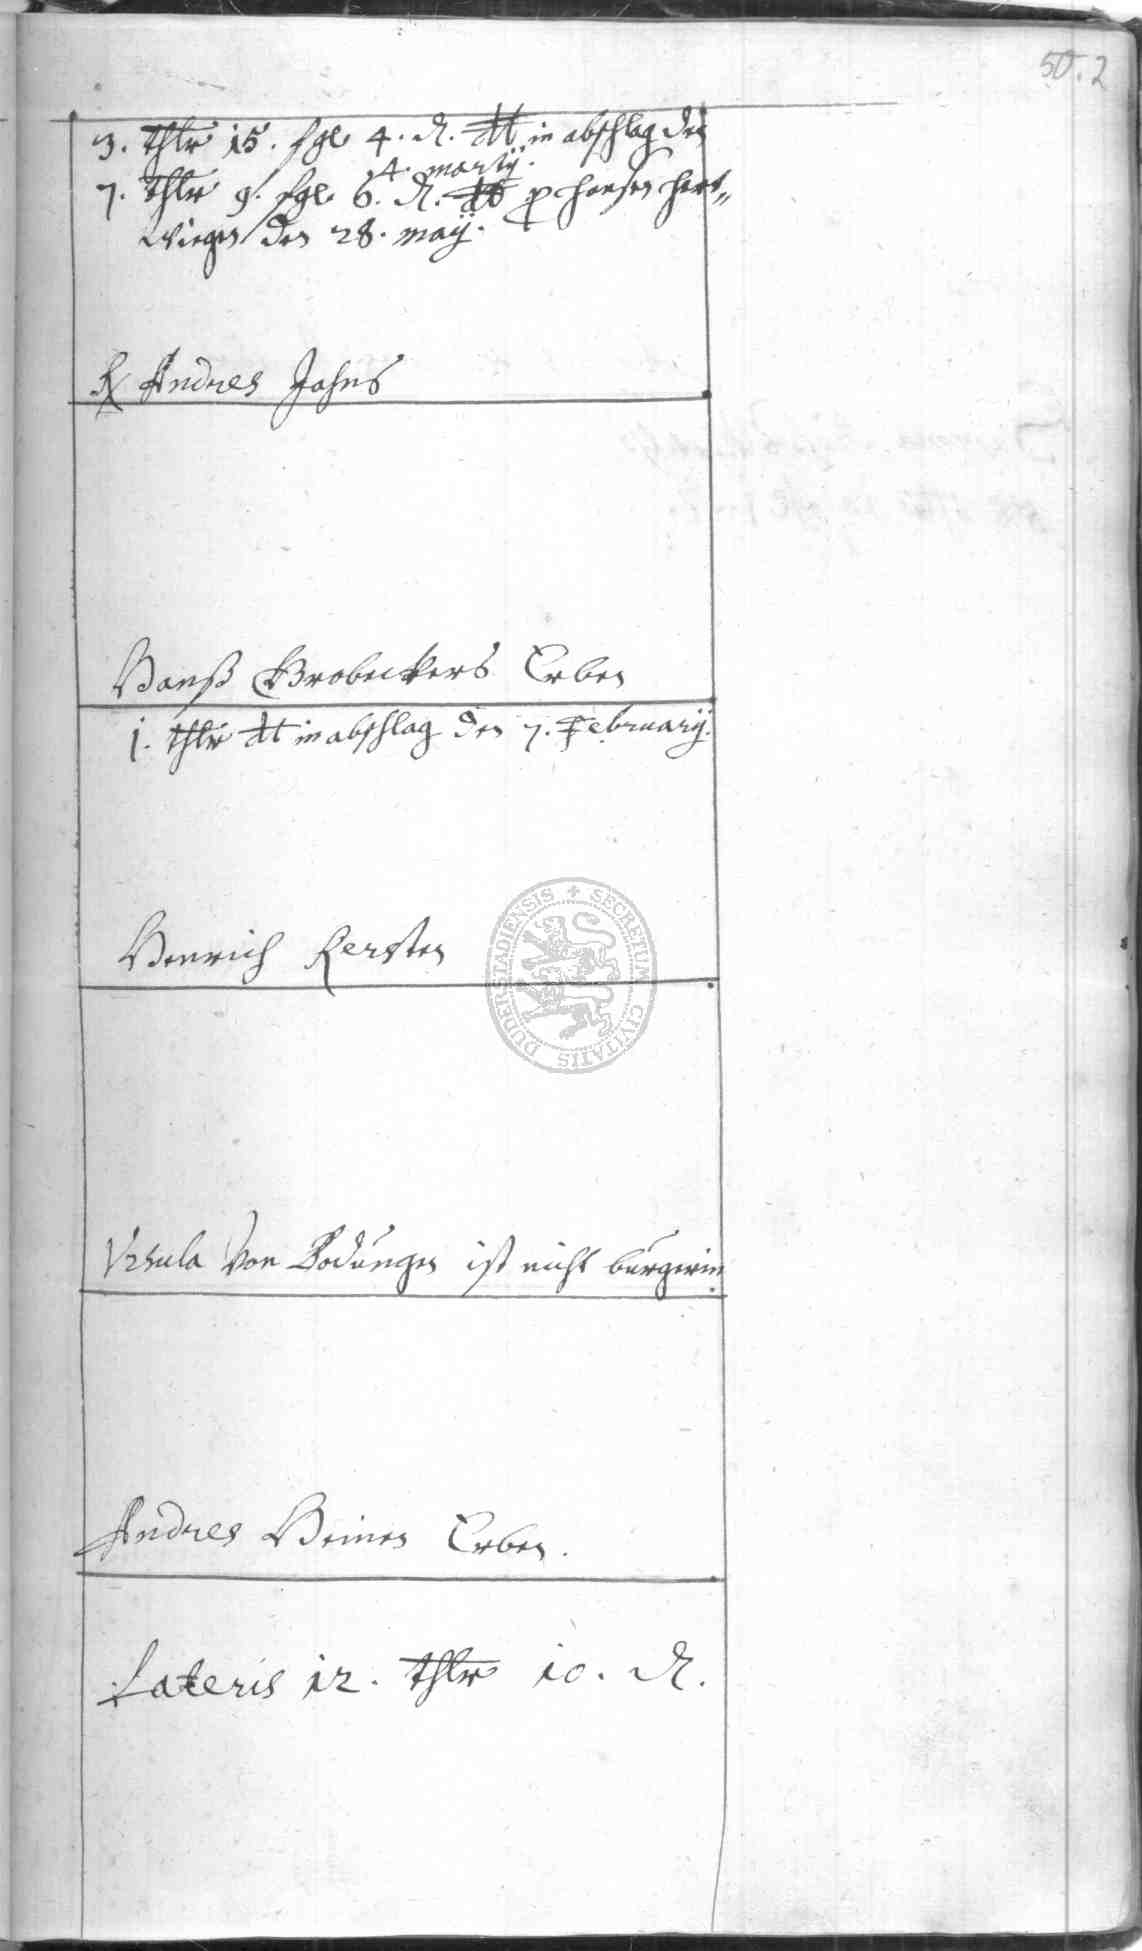 50.2
3. thlr 15. sgl 4. d. dt in abschlag den
4. martij.
7. thlr 9. sgl 6. d. dt p hansen hert„
wiegen den 28. maij.
Andres Jahns
Hanß Brobeckers Erben
1. thlr dt in abschlag den 7. February.
Henrich Kersten
Vrsula Von Bodungen ist nicht burgerin
Andres Heinen Erben.
Lateris 12. thlr 10. d.
SECRETUM CIVITATIS DUDERSTADIENSIS